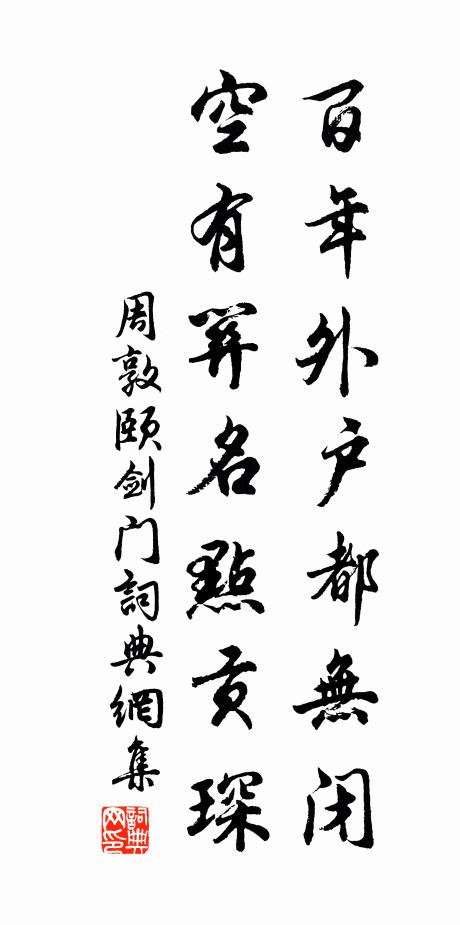 百年外户都無闭
空有關名點贡琛
周敦颐剑门詞典網集
詞典网印